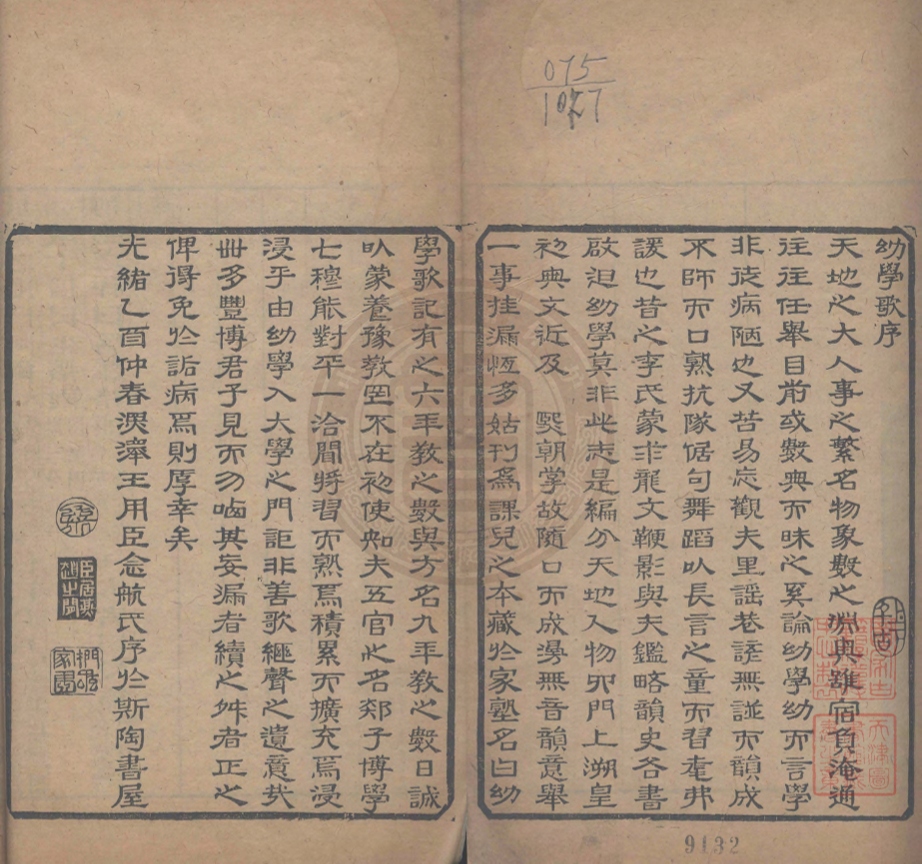 075
1077
幼學歌序
天地之大人事之繁名物象數之淵奧雖宿負淹通
往往任舉目前或數典而昧之奚論幼學幼而言學
非徒病陋也又苦易忘觀夫里謠巷諺無諩而韻成
不師而口熟抗隊倨句舞蹈以長言之童而習耄弗
諼也昔之李氏蒙求龍文鞭影與夫鑑略韻史各書
啟迫幼學莫非此志是編分天地人物四門上溯皇
初典文近及 熙朝掌故隨口而成湯無音韻意舉
一事挂漏恆多姑刊為課兒之本藏於家塾名曰幼
學歌記有之六年教之數與方名九年教之數日誠
以蒙養豫教罔不在初使知夫五官之名郯子博學
七穆能對平一洽聞將習而熟焉積累而擴充焉浸
浸乎由幼學入大學之門詎非善歌繼聲之遺意哉
世多豐博君子見而勿嗤其妄漏者續之舛者正之
俾得免於詬病焉則厚幸矣
光緒乙酉仲春深澤王用臣念航氏序於斯陶書屋
9132